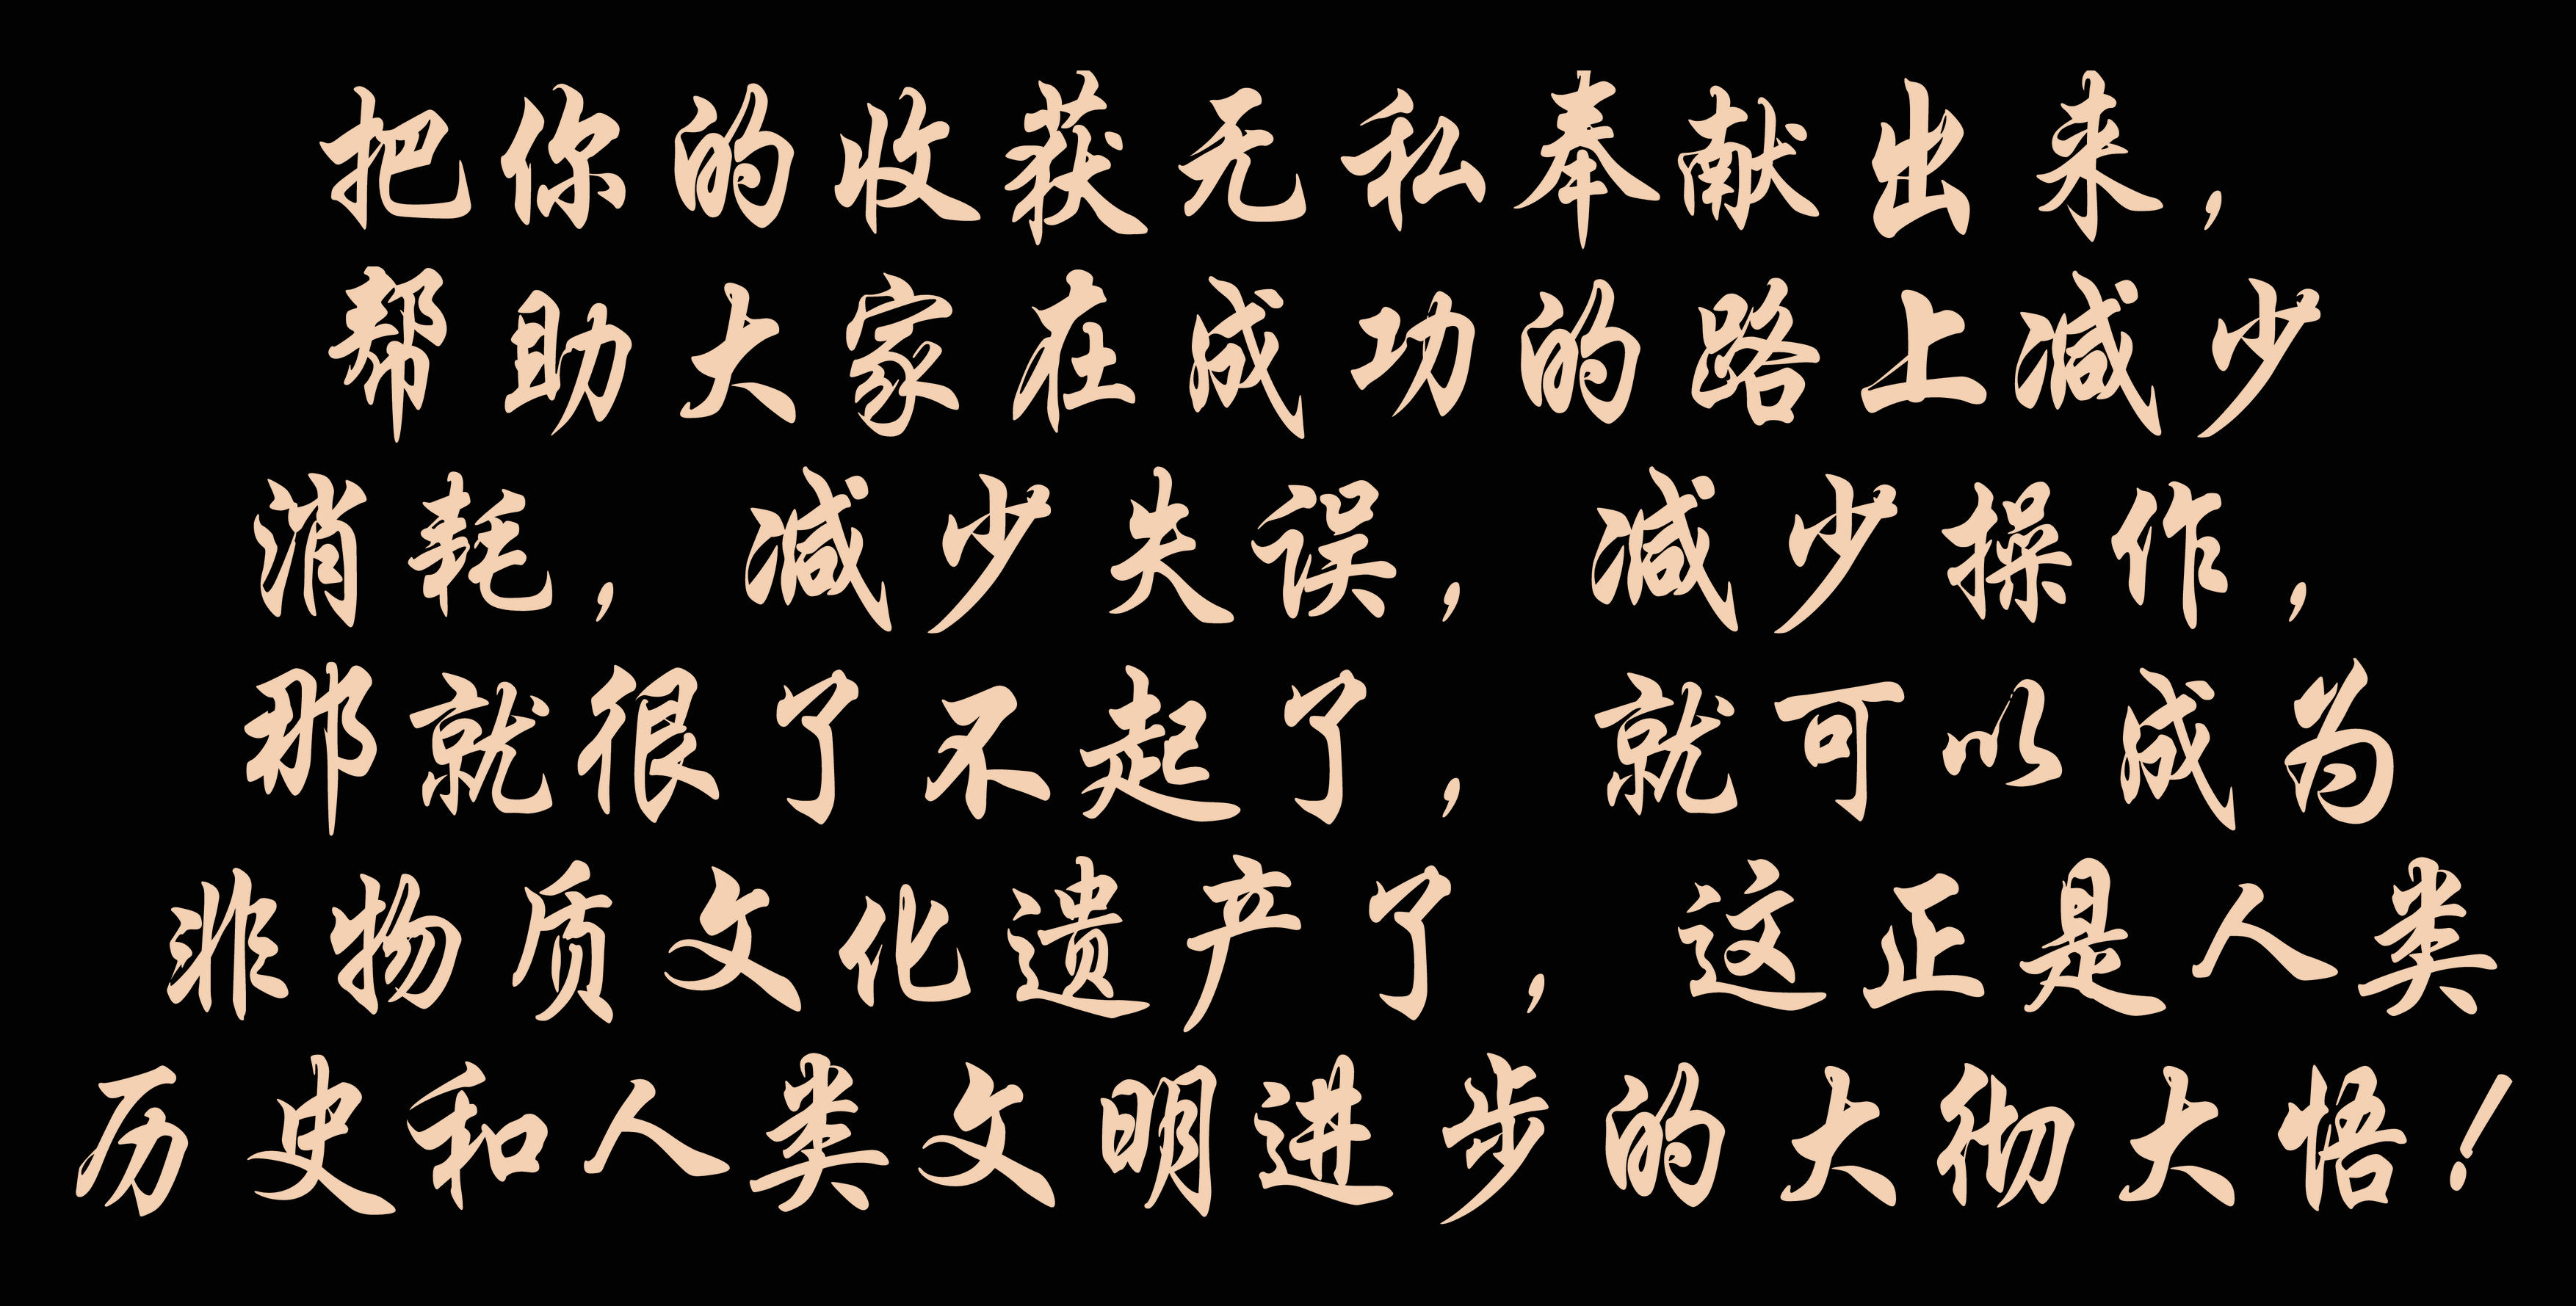 把你的收获无私奉献出来，
帮助大家在成功的路上减少
消耗，减少失误，减少操作，
那就很了不起了，就可以成为
非物质文化遗产了，这正是人类
历史和人类文明进步的大彻大悟！